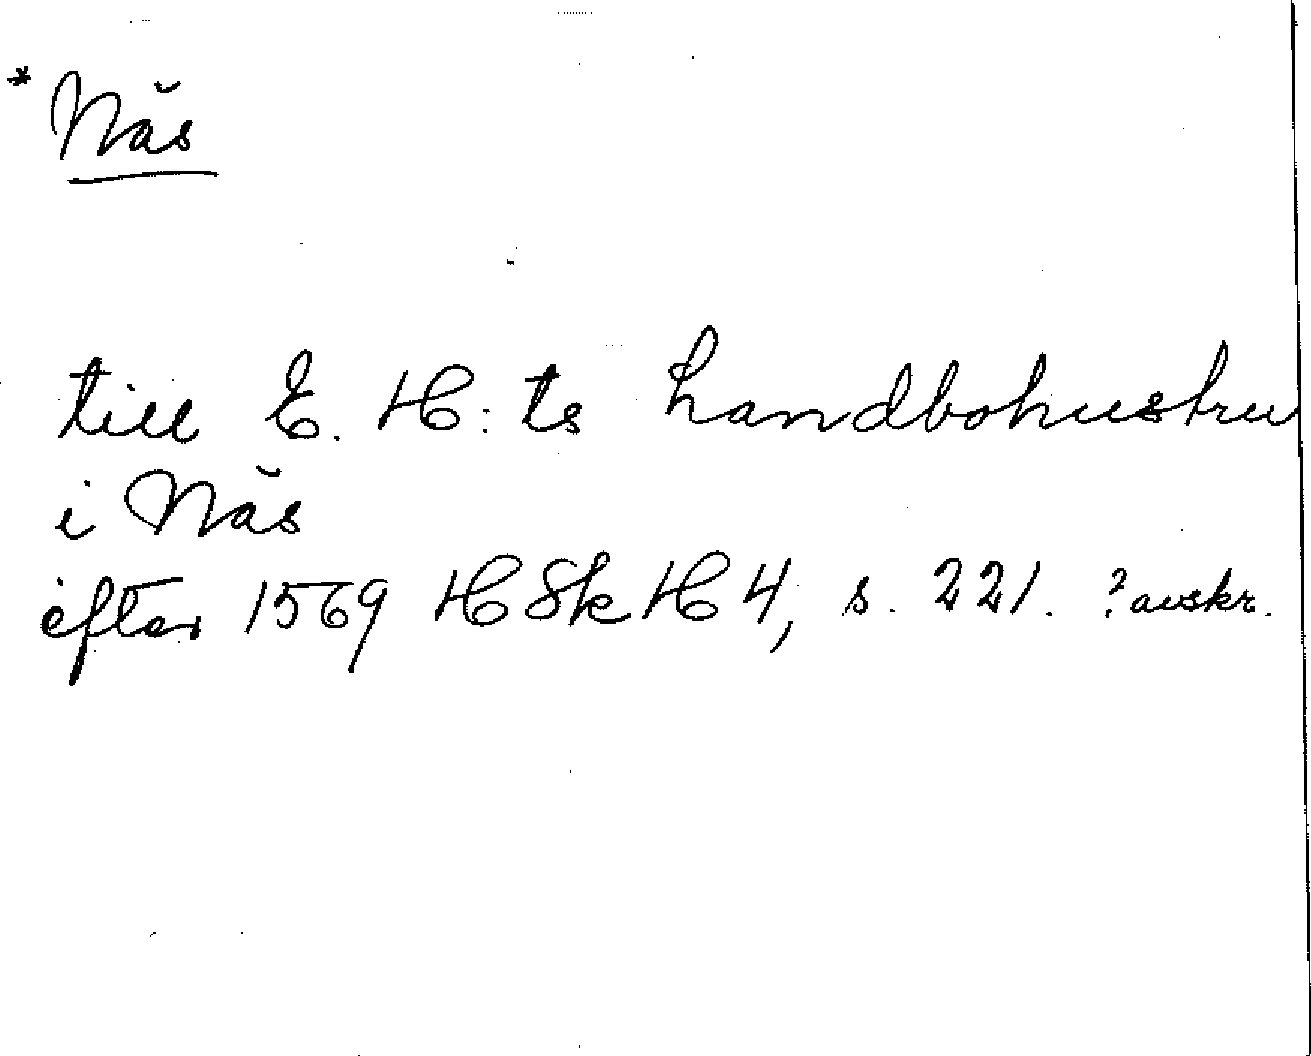 * Näs
till E. H:ts landbohustru
i Näs
efter 1569 HSkH 4, s. 221. ? avskr.